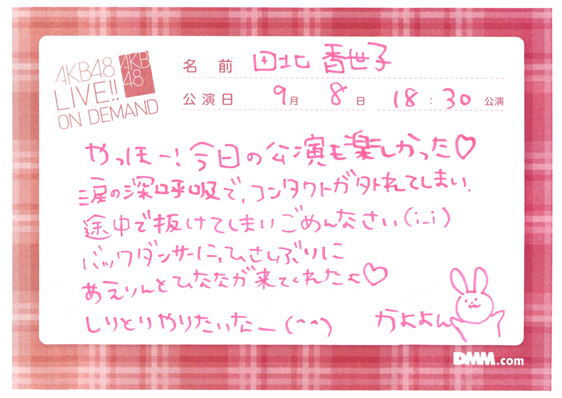 AKB48
LIVE!!
ON DEMAND
AKB
48
名前 田北香世子
公演日 9月 8日 18:30 公演
やっほー!今日の公演も楽しかった♡
涙の深呼吸で、コンタクトが外れてしまい、
途中で抜けてしまいごめんなさい(i_i)
バックダンサーに、ひさしぶりに
あえりんとひななが来てくれたよ♡
しりとりやりたいなー(^^)
かよよん
DMM.com